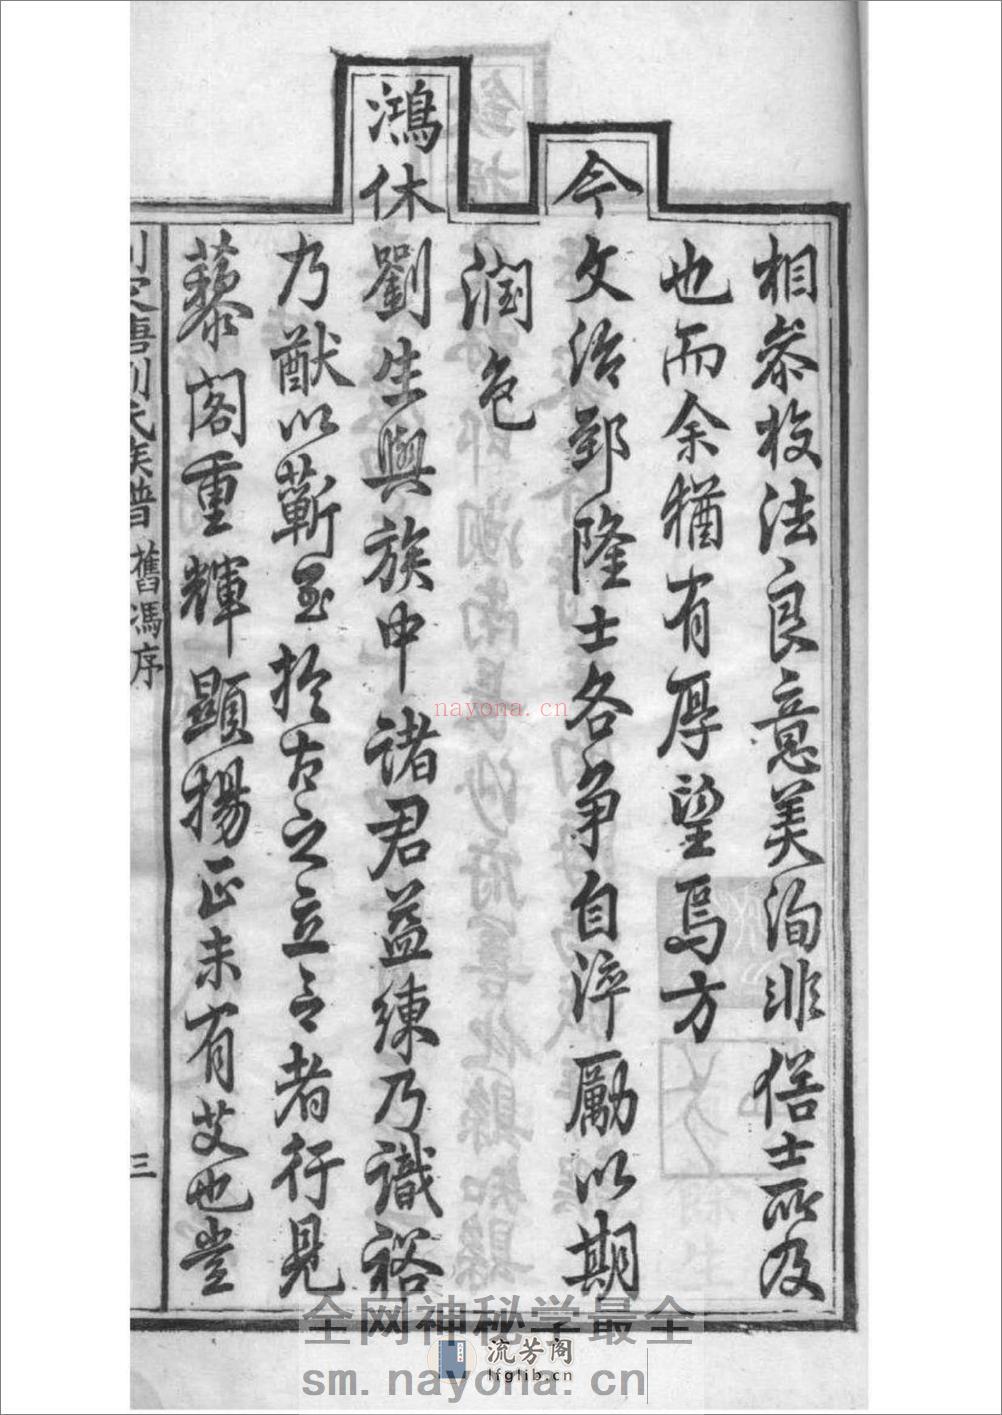 相參校法良意美洵非俗士所及
也而余猶有厚望焉方
今文治郅隆士各爭自淬勵以期
潤色
鴻休劉生與族中諸君益練乃識裕
乃猷以蘄至於古之立言者行見
藜閣重輝顯揚正未有艾也豈
氏族譜 舊馮序
三
nayona.cn
全网神秘学最全
流芳阁
lfglib.cn
sm.nayona.cn